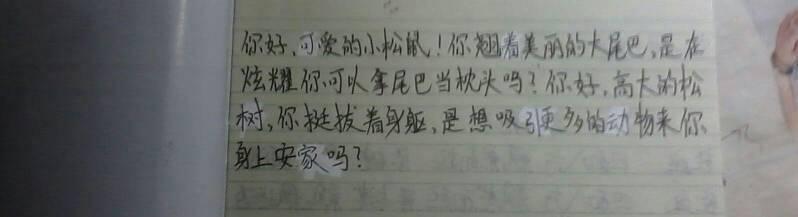 你好,可爱的小松鼠!你翘着美丽的大尾巴,是在
炫耀你可以拿尾巴当枕头吗?你好,高大的松
树,你挺拔着身躯,是想吸引更多的动物来你
身上安家吗?